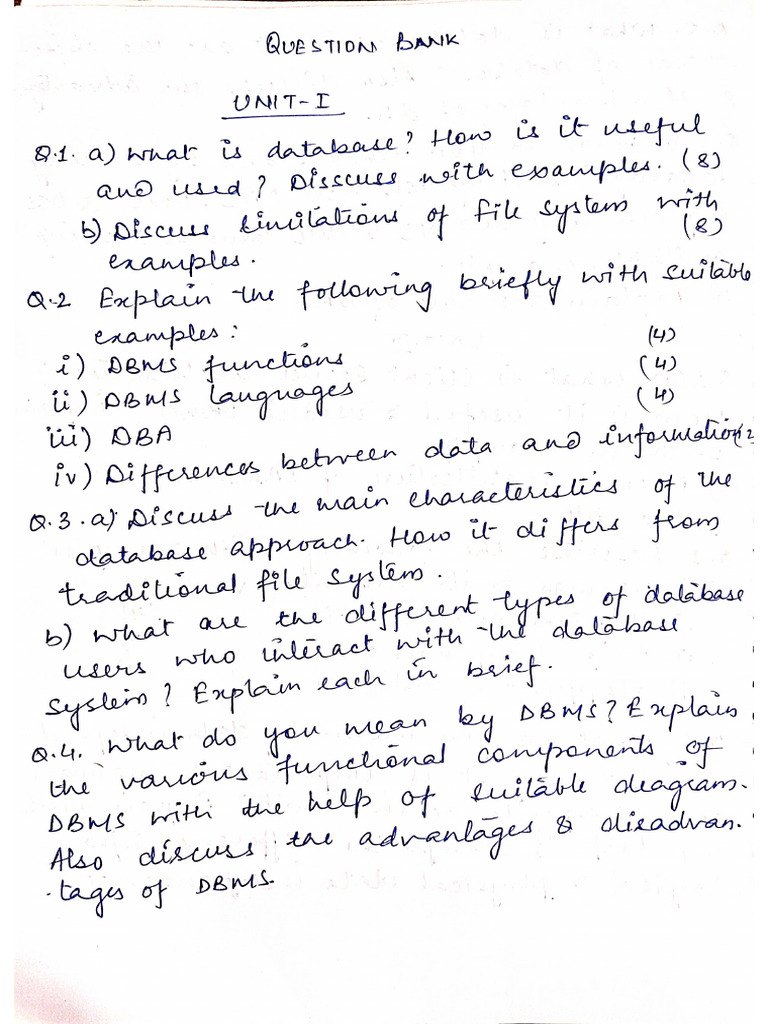 QUESTION BANK
UNIT-I
Q.1. a) What is database? How is it useful
and used? Disscuss with examples. (8)
b) Discuss limitations of file system with
examples. (8)
Q.2 Explain the following briefly with suitable
examples:
i) DBMS functions (4)
ii) DBMS languages (4)
iii) DBA (4)
iv) Differences between data and information
Q.3. a) Discuss the main characteristics of the
database approach. How it differs from
traditional file system.
b) What are the different types of database
users who interact with the database
system? Explain each in brief.
Q.4. What do you mean by DBMS? Explain
the various functional components of
DBMS with the help of suitable diagram.
Also discuss the advantages & disadvan.
-tages of DBMS.